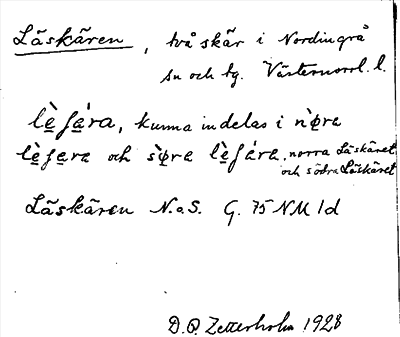 Läskären, två skär i Nordingrå
sn och tg. Västernorrl. l.
lè̱ʃa̱ra, kunna indelas i nø̱̀ra
lè̱ʃa̱ra och sø̱̀ra lè̱ʃa̱ra, norra Läskäret
och södra Läskäret
Läskären N.o.S. G. 75 NM 1d
D.O. Zetterholm 1928